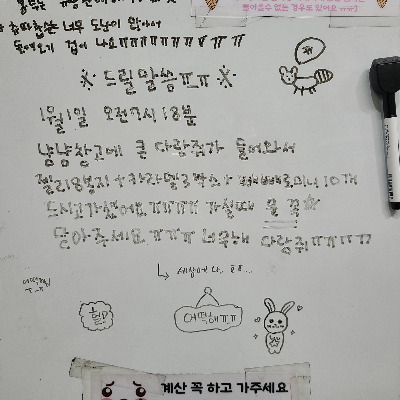 들어올수 없는 경우도 있어요 ㅠㅠ)
너무 도남이 많아서
들여오기 겁이 나요ㅠㅠㅠㅠㅠㅠㅠㅠ
※ 드릴말씀ㅠㅠ ※
1월1일 오전7시 18분
냥냥창고에 큰 다람쥐가 들어와서
젤리8봉지+카라멜3박스+빼빼로미니10개
드시고가셨어요ㅠㅠㅠㅠ 가실때 문 꼭☆
닫아주세요ㅠㅠㅠ 너무해 다람쥐ㅠㅠㅠㅠ
↳ 세상에나.. ㅠㅠ...
헐?
어떡해ㅠㅠ
계산 꼭 하고 가주세요